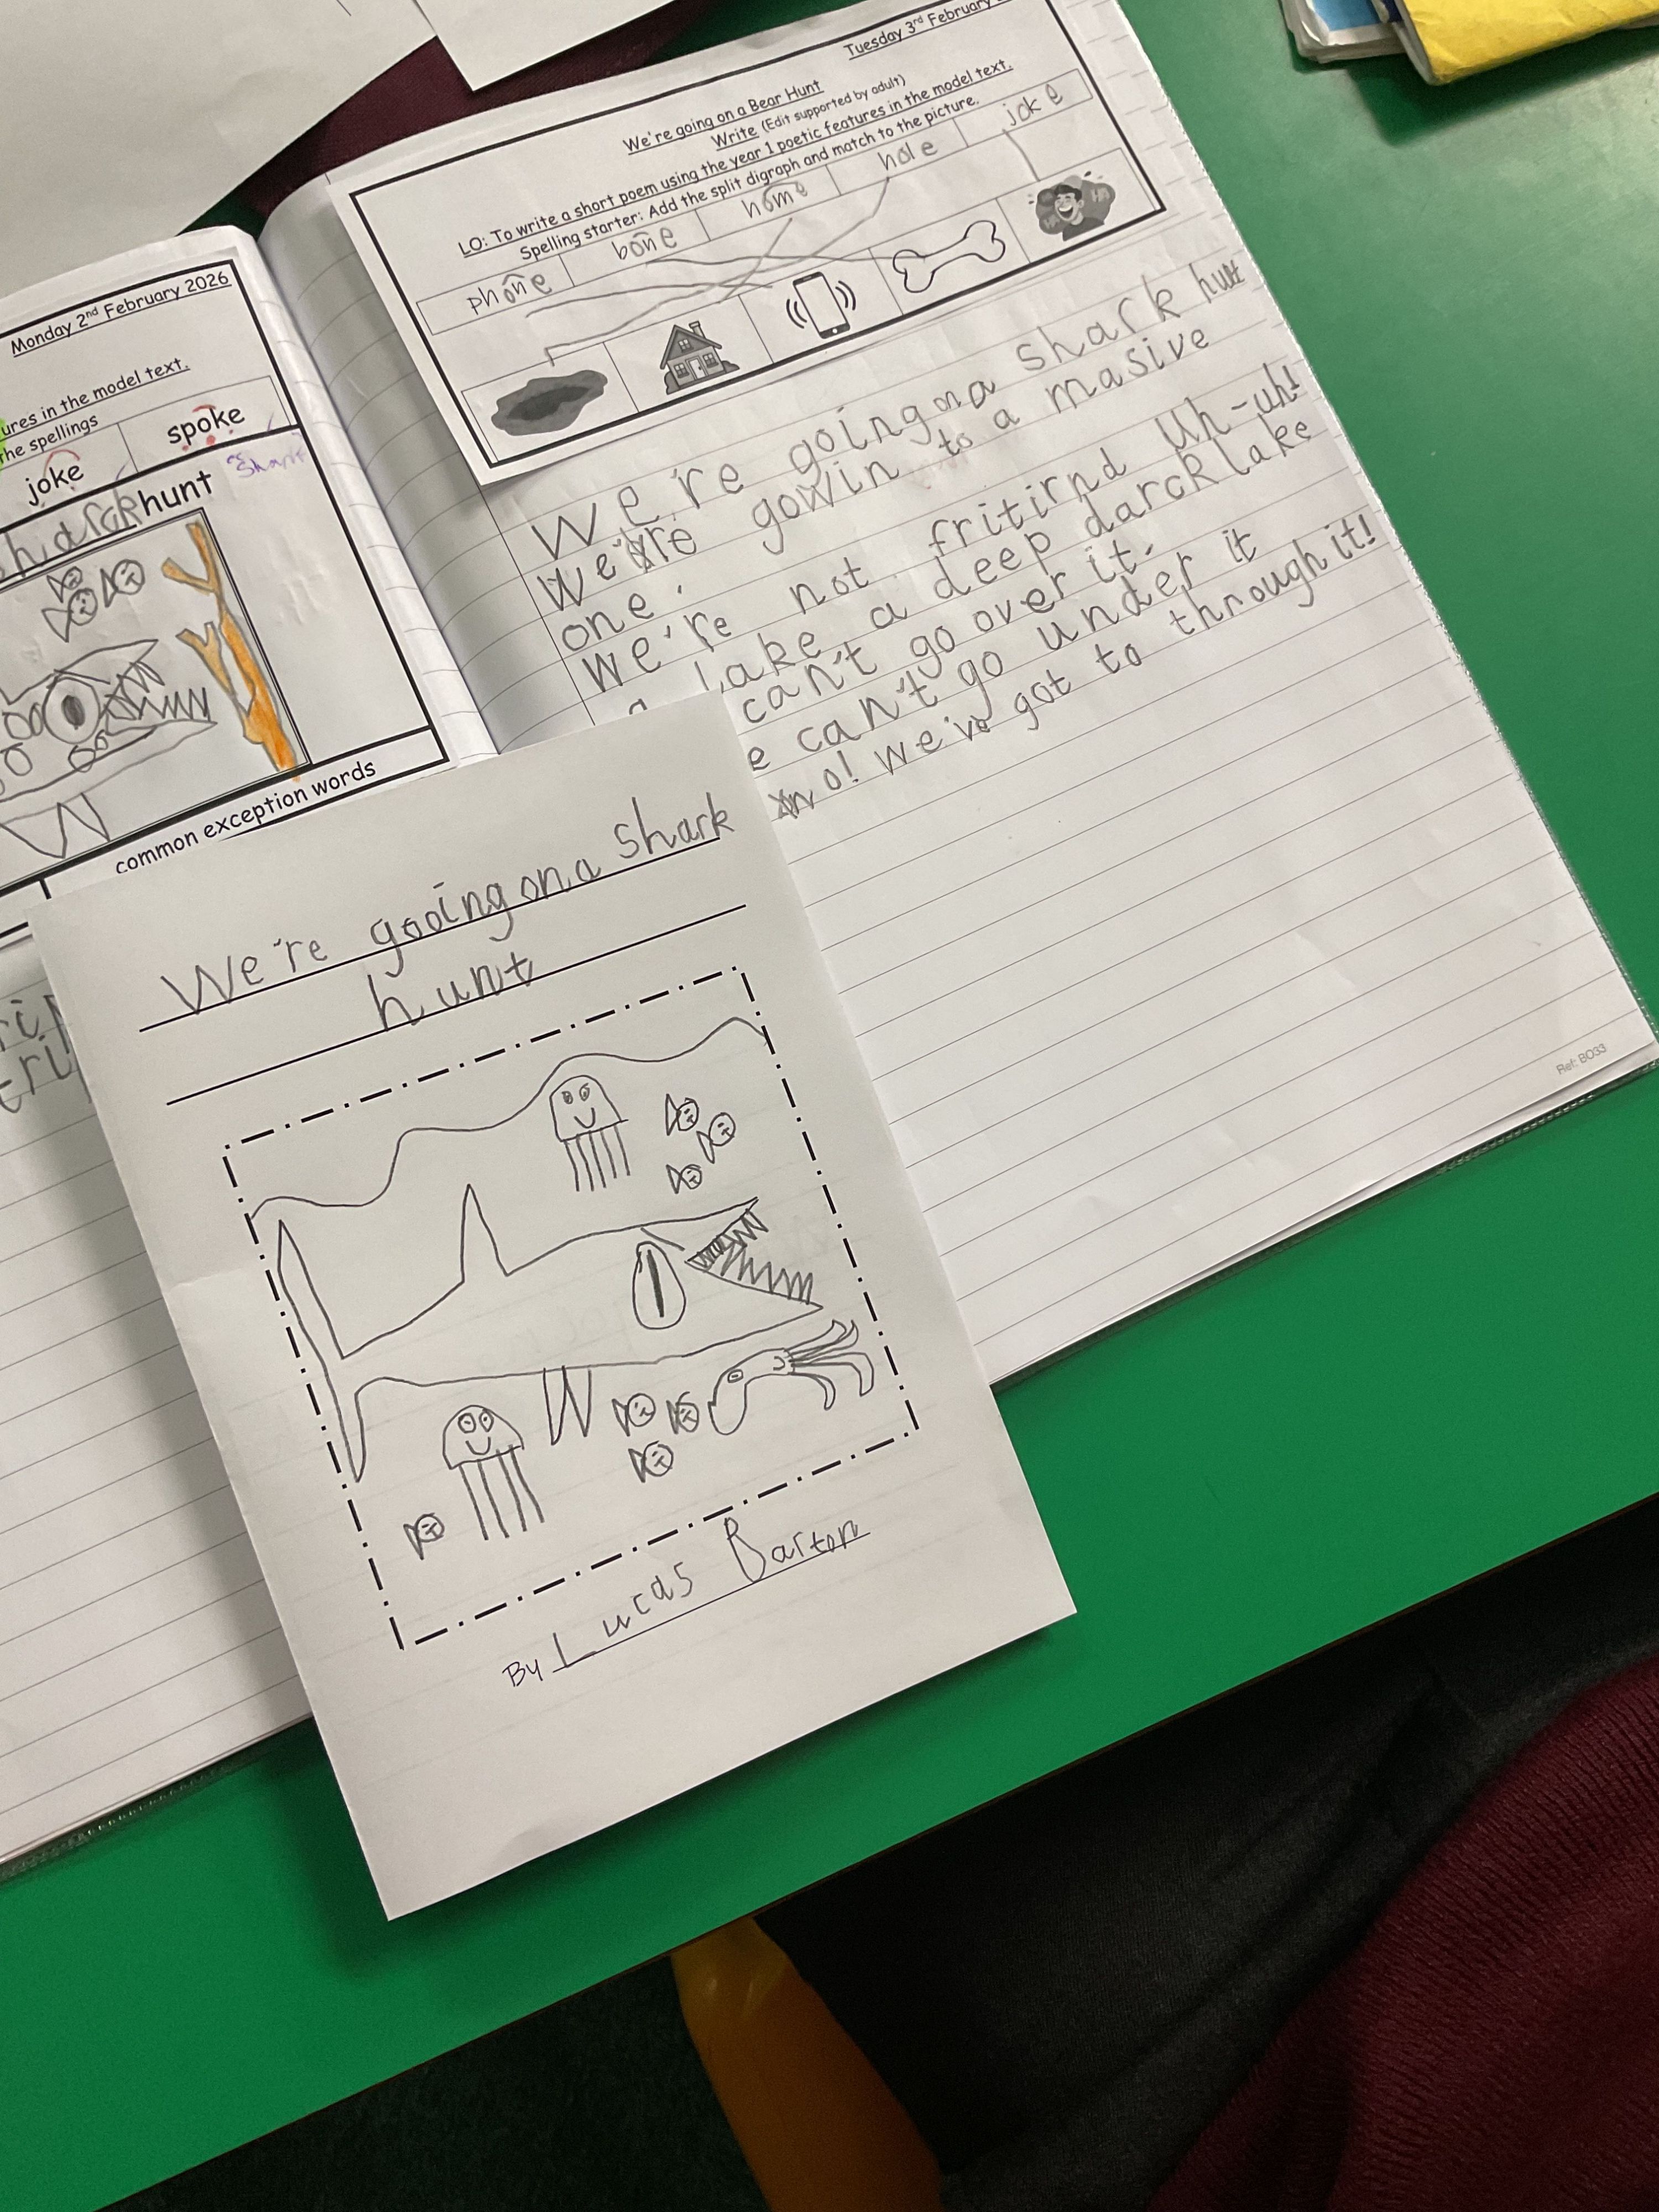 Monday 2nd February 2026
ures in the model text.
the spellings
joke
spoke
shark
hunt
common exception words
Tuesday 3rd February
We're going on a Bear Hunt
Write (Edit supported by adult)
LO: To write a short poem using the year 1 poetic features in the model text.
Spelling starter: Add the split digraph and match to the picture.
phone bone home hole joke
We're going on a shark hunt
We're gowin to a masive
one.
We're not fritirnd Uh-uh!
a lake a deep darck lake
can't go over it.
e can't go under it
no! we've got to through it!
Ref: BO33
We're gooing on a Shark
hunt
By Lucas Barton